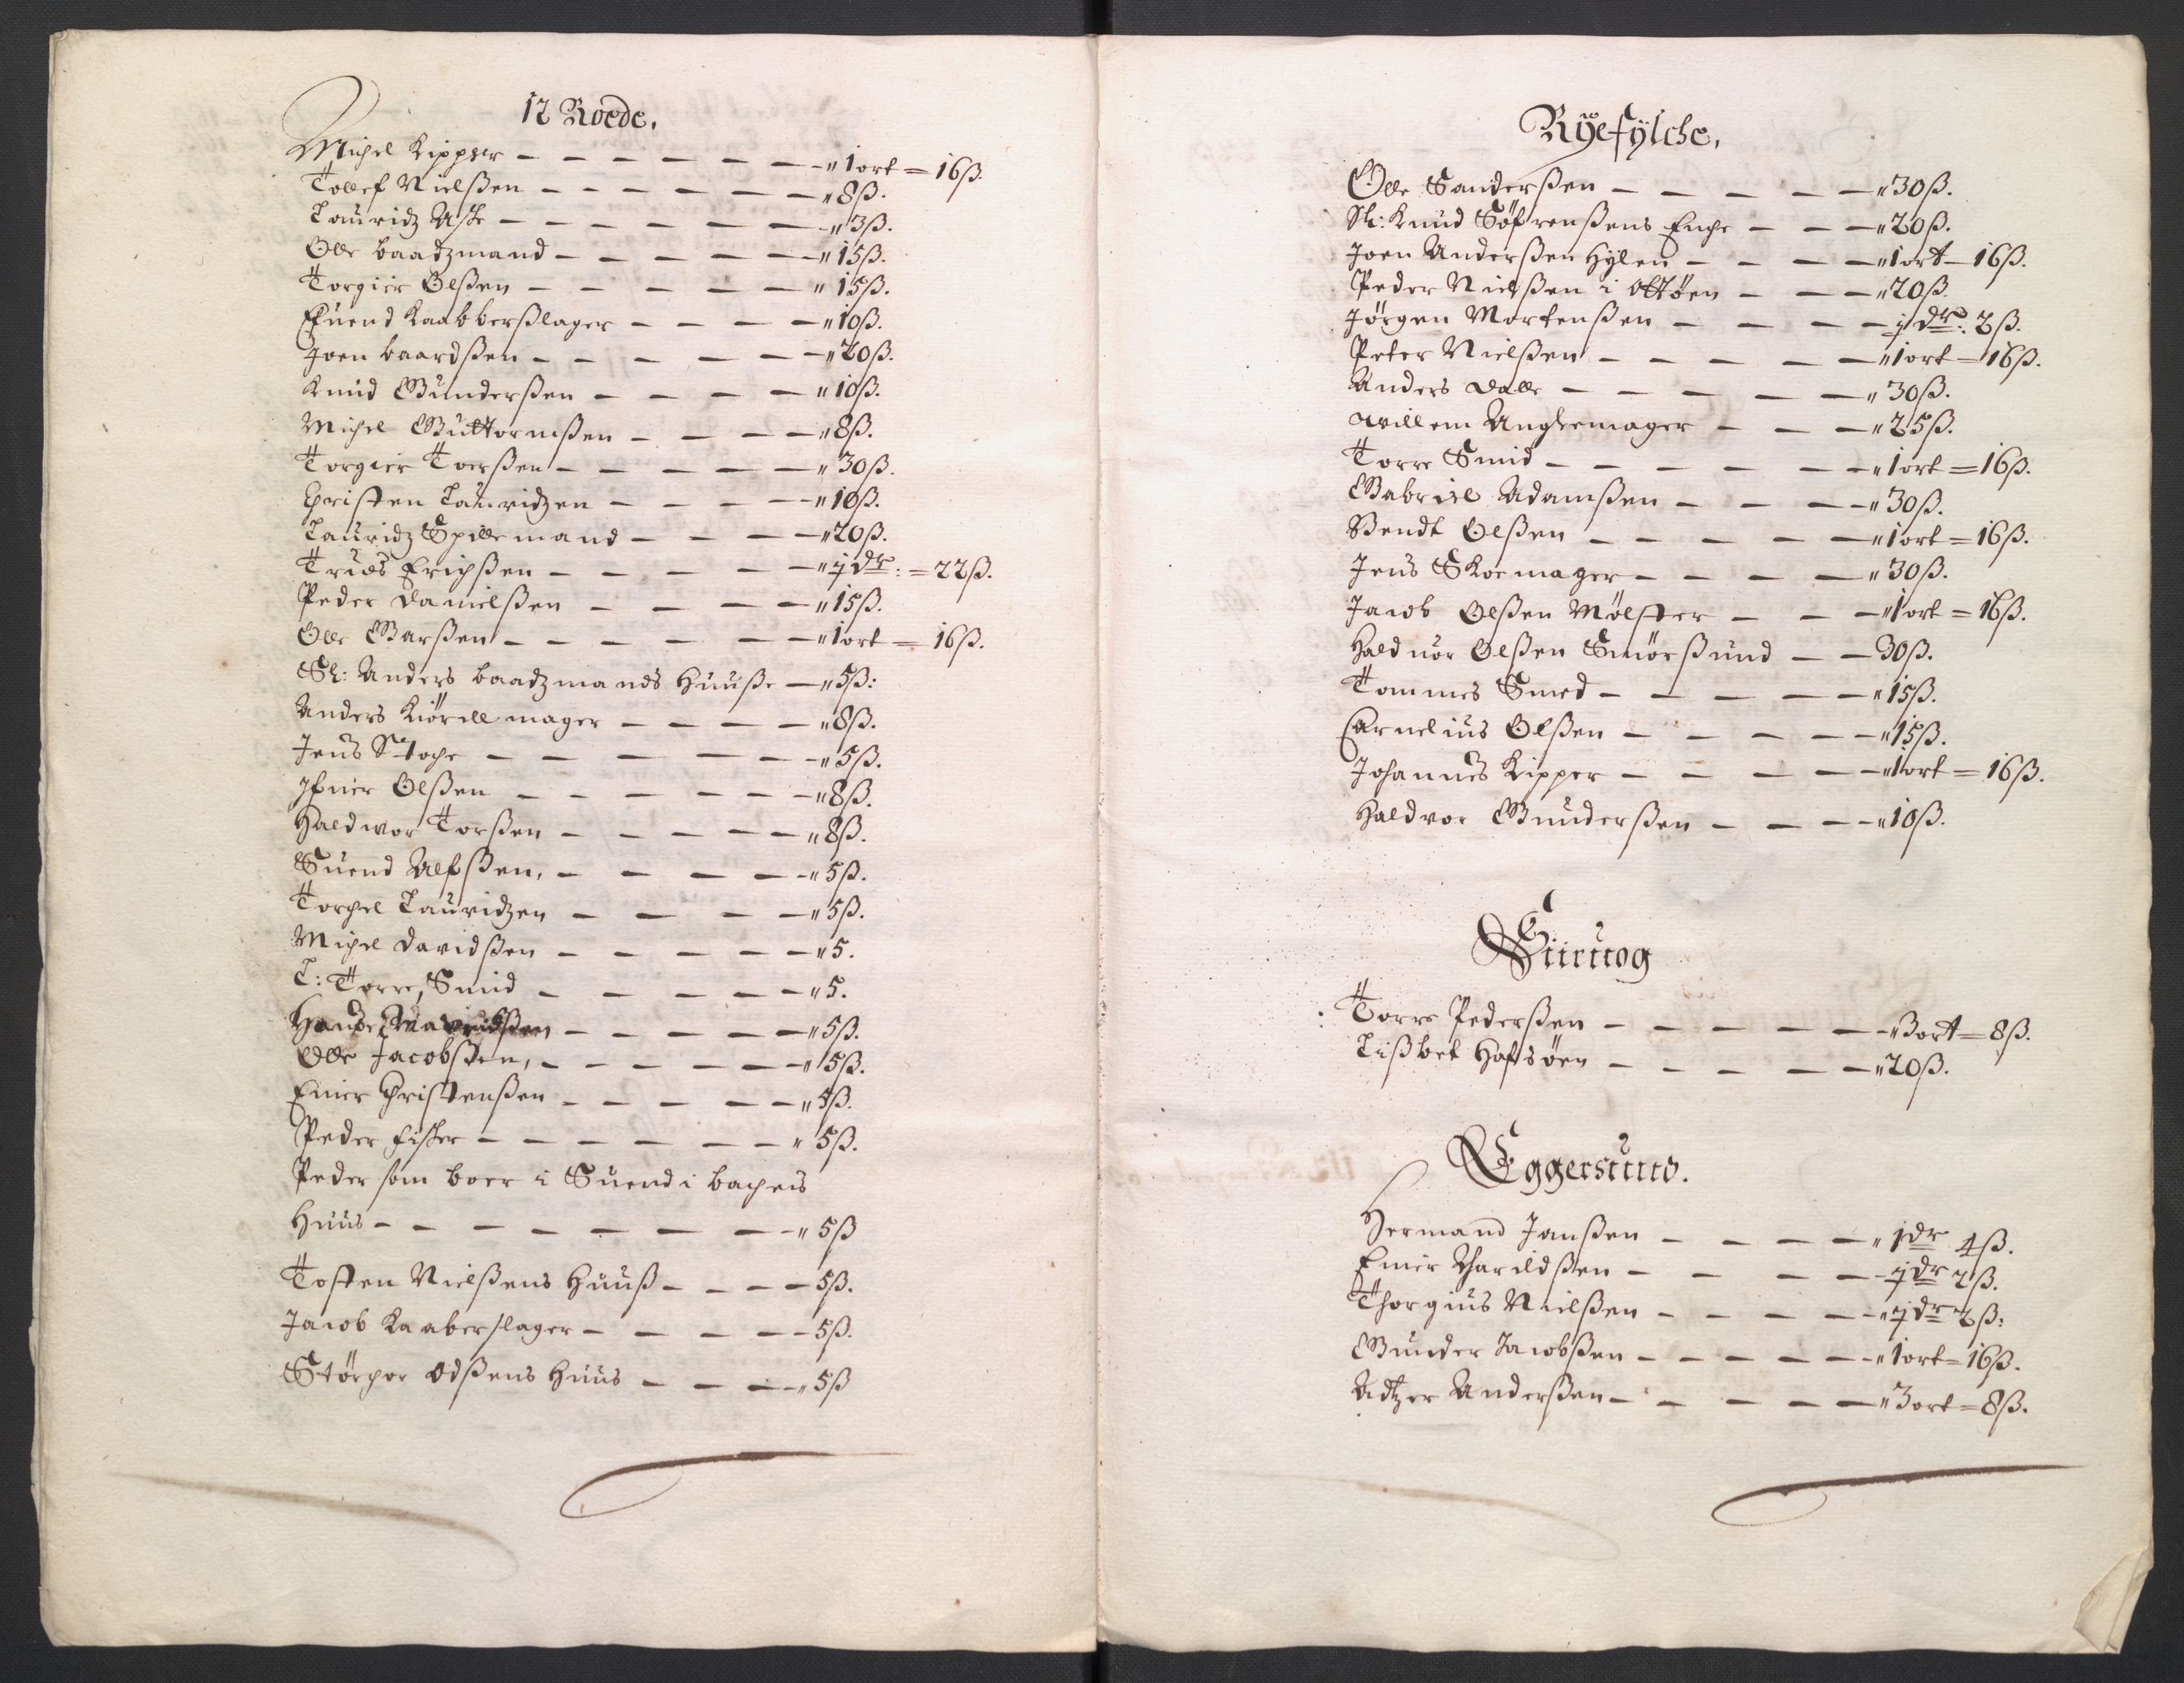 12 Roede.
Michel Kipper — — — — — — " 1 ort = 16 ß.
Tollef Nielßen — — — — — — " 8 ß.
Lauridz Aske — — — — — — " 3 ß.
Olle baadzmand — — — — — " 15 ß.
Torgier Olßen — — — — — — " 15 ß.
Efuend Kaabberßlager — — — — " 10 ß.
Joen baardßen — — — — — — " 20 ß.
Knud Gunderßen — — — — " 10 ß.
Michel Guttormßen — — — — " 8 ß.
Torgier Toerßen — — — — — " 30 ß.
Christen Lauridzen — — — — " 10 ß.
Lauridz Spillemand — — — — " 20 ß.
Truls Erichßen — — — — — " j dr: = 22 ß.
Peder Danielßen — — — — — " 15 ß.
Olle Garßen — — — — — — " 1 ort = 16 ß.
Sl: Anders baadzmands Huuße — " 5 ß:
Anders Kiörellmager — — — — " 8 ß.
Jens Stoche — — — — — — " 5 ß.
Ifuer Olßen — — — — — — " 8 ß.
Haldwor Torßen — — — — — " 8 ß.
Suend Alfßen, — — — — — " 5 ß.
Torchel Lauridzen — — — — " 5 ß.
Michel Davidßen — — — — — " 5.
L: Torre Smid — — — — — " 5.
Hanße — — — — — " 5 ß.
Olle Jacobßen, — — — — — — " 5 ß.
Einer Christenßen — — — — — " 5 ß.
Peder Fisker — — — — — — — " 5 ß.
Peder som boer i Suend i bacheis
Huus — — — — — — — — " 5 ß
Tosten Nielßens Huuß — — — — 5 ß.
Jacob Kaaberslager — — — — — 5 ß.
Störchor Odßens Huus — — — — " 5 ß
Ryefylche.
Olle Sanderßen — — — — — " 30 ß.
Sl: Knud Söfrenßens Enche — — — " 20 ß.
Joen Anderßen Hylen — — — — " 1 ort — 16 ß.
Peder Nielßen i Ottöen — — — " 20 ß.
Jörgen Mortenßen — — — — j dr: 2 ß.
Peter Nielßen — — — — — " 1 ort — 16 ß.
Anders Dalle — — — — — — " 30 ß.
Willem Anghemager — — — " 25 ß.
Torre Smid — — — — — — " 1 ort = 16 ß.
Gabriel Adamßen — — — — " 30 ß.
Bendt Olßen — — — — — " 1 ort = 16 ß.
Jens Skoemager — — — — " 30 ß.
Jacob Olßen Mölster — — — " 1 ort = 16 ß.
Halduor Olßen Smörßund — — 30 ß.
Tommes Smed — — — — — " 15 ß.
Carnelius Olßen — — — — — " 15 ß.
Johannes Kipper — — — — — " 1 ort = 16 ß.
Haldvor Gunderßen — — — — " 10 ß.
Torre Pederßen — — — — — — " 3 ort = 8 ß.
Lißbet Hafsöen — — — — — " 20 ß.
Eggersund.
Hermand Janßen — — — — — " 1 dr 4 ß.
Einer Tharildßen — — — — j dr 2 ß.
Thorgius Nielßen — — — — — " j dr 2 ß:
Gunder Jacobßen — — — — — " 1 ort = 16 ß.
Adtzer Anderßen — — — — — " 3 ort = 8 ß.